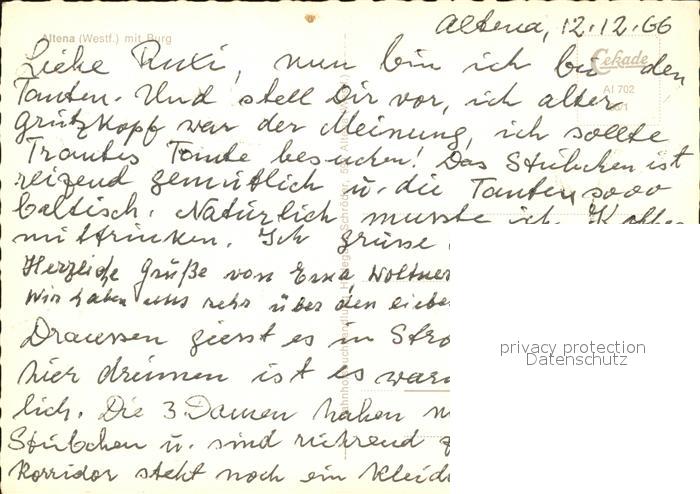 Altena (Westf.) mit Burg
Altena, 12.12.66
Cekade
Al 702
Liebe Ruxi, nun bin ich bei den
Tanten. Und stell Dir vor, ich alter
Grützkopf war der Meinung, ich sollte
Trautes Tante besuchen! Das Stübchen ist
reizend gemütlich u. die Tanten sooo
baltisch. Natürlich musste ich Kaffee
mittrinken. Ich grüsse
Herzliche Grüße von Erna Woltner
Wir haben uns sehr über den liebe
Draussen giesst es in Stro
hier drinnen ist es warm
lich. Die 3 Damen haben
Stübchen u. sind rührend
Korridor steht noch ein Kleid
privacy protection
Datenschutz